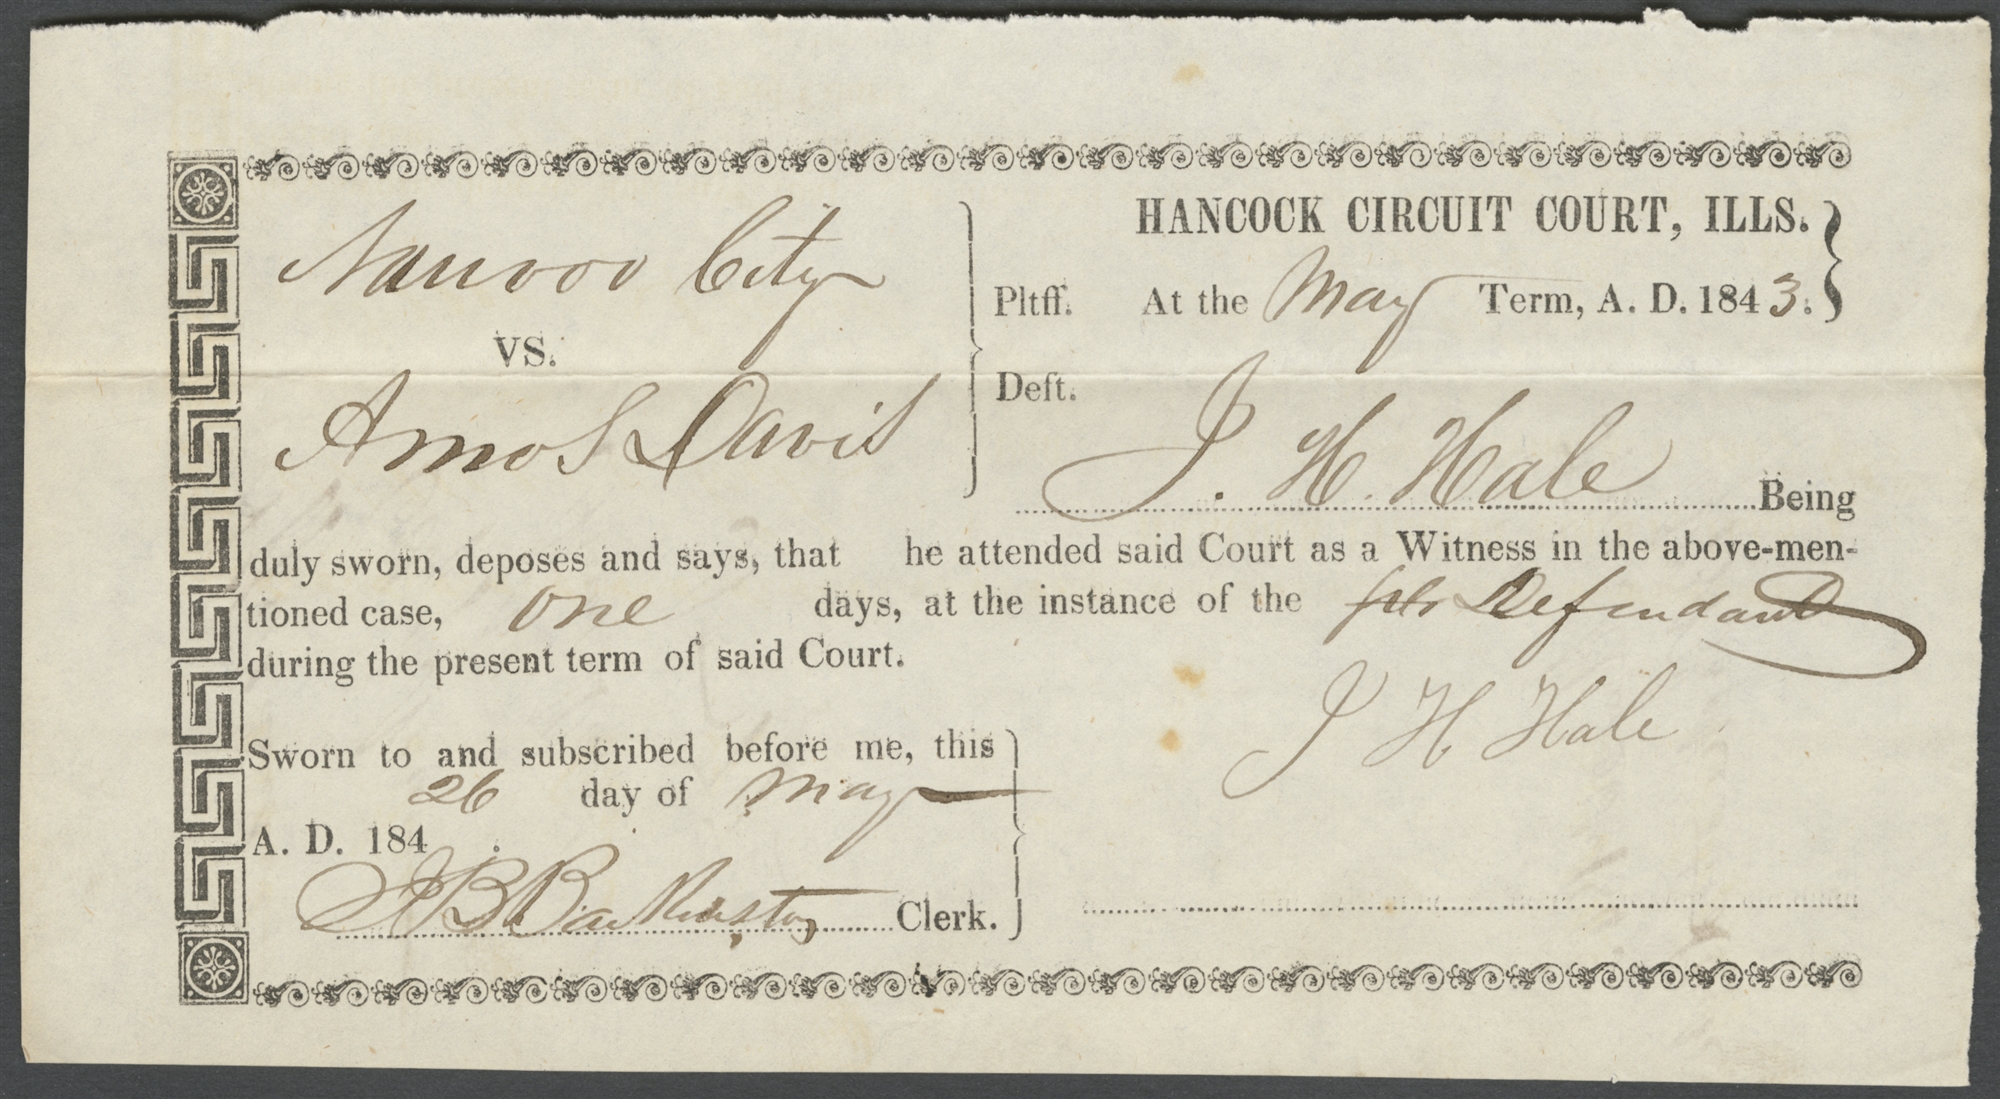 HANCOCK CIRCUIT COURT, ILLS.
Nauvoo City
Pltff. At the May Term, A. D. 1843.
VS.
Amos Davis
Deft.
J. H. Hale Being
duly sworn, deposes and says, that he attended said Court as a Witness in the above-men-
tioned case, one days, at the instance of the Defendant
during the present term of said Court.
J H Hale
Sworn to and subscribed before me, this
26 day of May
A. D. 184 .
J B Backenstos, Clerk.